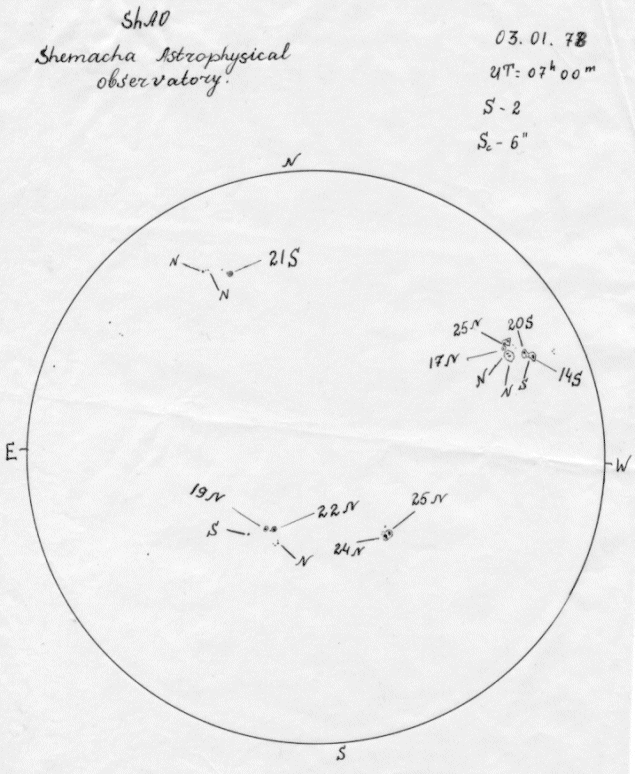 ShAO
Shemacha Astrophysical
observatory.
03.01.78
UT: 07ʰ 00ᵐ
S - 2
Sc - 6"
N
N
21S
N
25N
20S
17N
14S
N
N
S
E
W
19N
22N
25N
S
24N
N
S